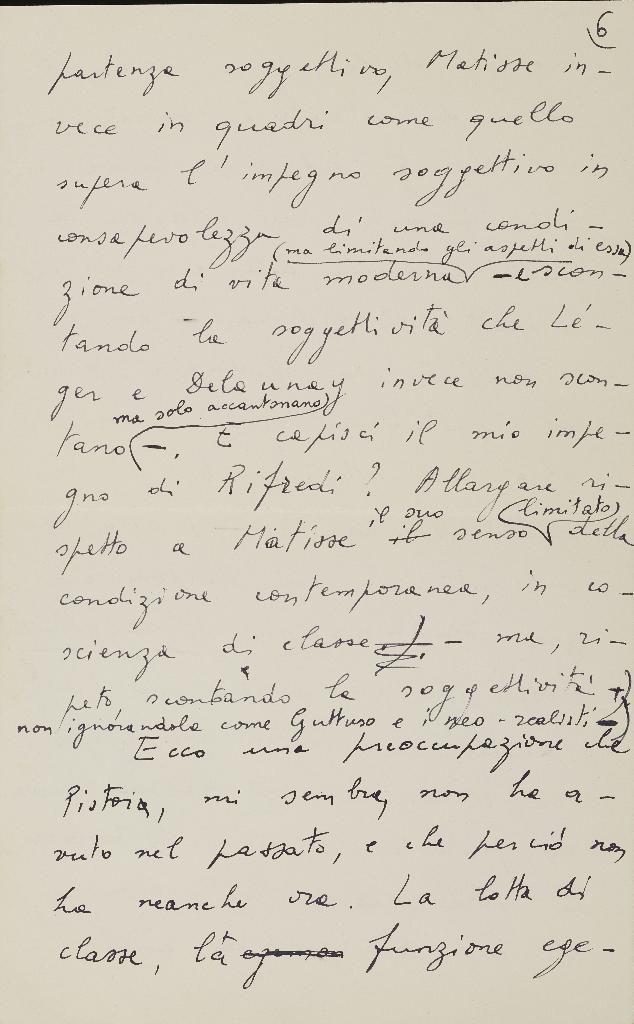 6
partenza soggettivo, Matisse in-
vece in quadri come quello
supera l'impegno soggettivo in
consapevolezza di una condi-
(ma limitando gli aspetti di essa)
zione di vita moderna - e scon-
tando la soggettività che Lé-
ger e Delaunay invece non scon-
ma solo accantonano)
tano -. E capisci il mio impe-
gno di Rifredi? Allargare ri-
il suo (limitato)
spetto a Matisse il senso della
condizione contemporanea, in co-
scienza di classe - ma, ri-
peto, scontando la soggettività
non ignorandola come Guttuso e i neo-realisti -)
Ecco una preoccupazione che
Pistoia, mi sembra, non ha a-
vuto nel passato, e che perciò non
ha neanche ora. La lotta di
classe, la funzione ege-